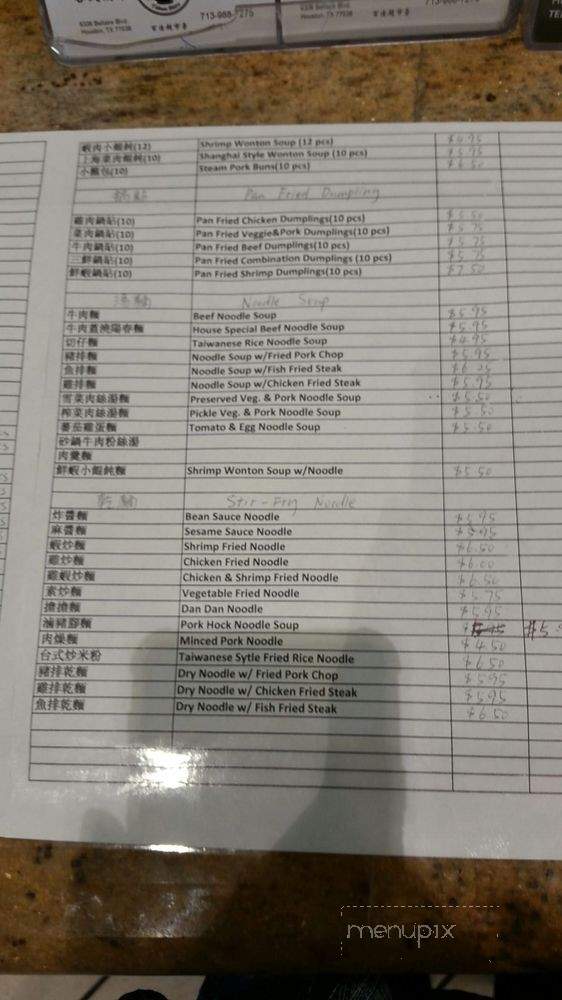 713-988-7275
Houston, TX 77036
百佳超市旁
Houston, TX 77036
百佳超市旁
蝦肉小餛飩(12) Shrimp Wonton Soup (12 pcs) $4.95
上海菜肉餛飩(10) Shanghai Style Wonton Soup (10 pcs) $5.95
小籠包(10) Steam Pork Buns(10 pcs) $6.50
鍋貼 Pan Fried Dumpling
雞肉鍋貼(10) Pan Fried Chicken Dumplings(10 pcs) $5.50
菜肉鍋貼(10) Pan Fried Veggie&Pork Dumplings(10 pcs) $5.75
牛肉鍋貼(10) Pan Fried Beef Dumplings(10 pcs) $5.75
三鮮鍋貼(10) Pan Fried Combination Dumplings (10 pcs) $5.75
鮮蝦鍋貼(10) Pan Fried Shrimp Dumplings(10 pcs) $7.50
湯麵 Noodle Soup
牛肉麵 Beef Noodle Soup $5.95
牛肉蓋澆陽春麵 House Special Beef Noodle Soup $5.95
切仔麵 Taiwanese Rice Noodle Soup $4.95
豬排麵 Noodle Soup w/Fried Pork Chop $5.95
魚排麵 Noodle Soup w/Fish Fried Steak $6.25
雞排麵 Noodle Soup w/Chicken Fried Steak $5.95
雪菜肉絲湯麵 Preserved Veg. & Pork Noodle Soup $5.50
榨菜肉絲湯麵 Pickle Veg. & Pork Noodle Soup $5.50
蕃茄雞蛋麵 Tomato & Egg Noodle Soup $5.50
砂鍋牛肉粉絲湯
肉羹麵
鮮蝦小餛飩麵 Shrimp Wonton Soup w/Noodle $5.50
乾麵 Stir-Fry Noodle
炸醬麵 Bean Sauce Noodle $5.95
麻醬麵 Sesame Sauce Noodle $5.95
蝦炒麵 Shrimp Fried Noodle $6.50
雞炒麵 Chicken Fried Noodle $6.00
雞蝦炒麵 Chicken & Shrimp Fried Noodle $6.50
素炒麵 Vegetable Fried Noodle $5.75
擔擔麵 Dan Dan Noodle $5.95
滷豬腳麵 Pork Hock Noodle Soup
肉燥麵 Minced Pork Noodle $4.50
台式炒米粉 Taiwanese Sytle Fried Rice Noodle $6.50
豬排乾麵 Dry Noodle w/ Fried Pork Chop $5.95
雞排乾麵 Dry Noodle w/ Chicken Fried Steak $5.95
魚排乾麵 Dry Noodle w/ Fish Fried Steak $6.50
menupix